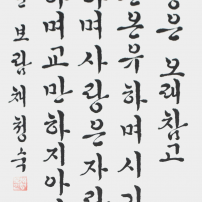 은 오래참고
은 온유하며 시기
하며 사랑은 자랑
하며 교만하지 아
보람 채청숙